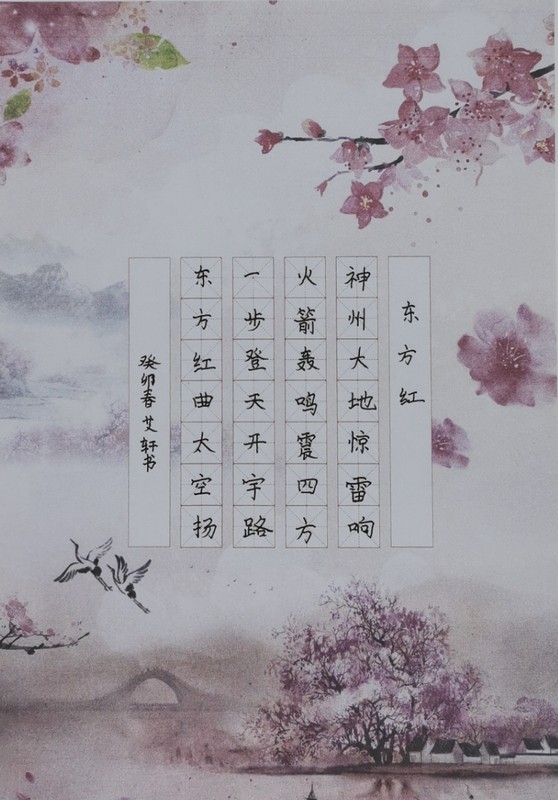 东方红
神州大地惊雷响
火箭轰鸣震四方
一步登天开宇路
东方红曲太空扬
癸卯春艾轩书